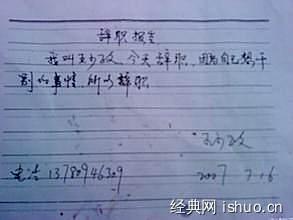 辞职报告
我叫王少政,今天辞职,因为自己想干
别的事情,所以辞职
王少政
电话 13780946309 2007 7.16
经典网 ishuo.cn